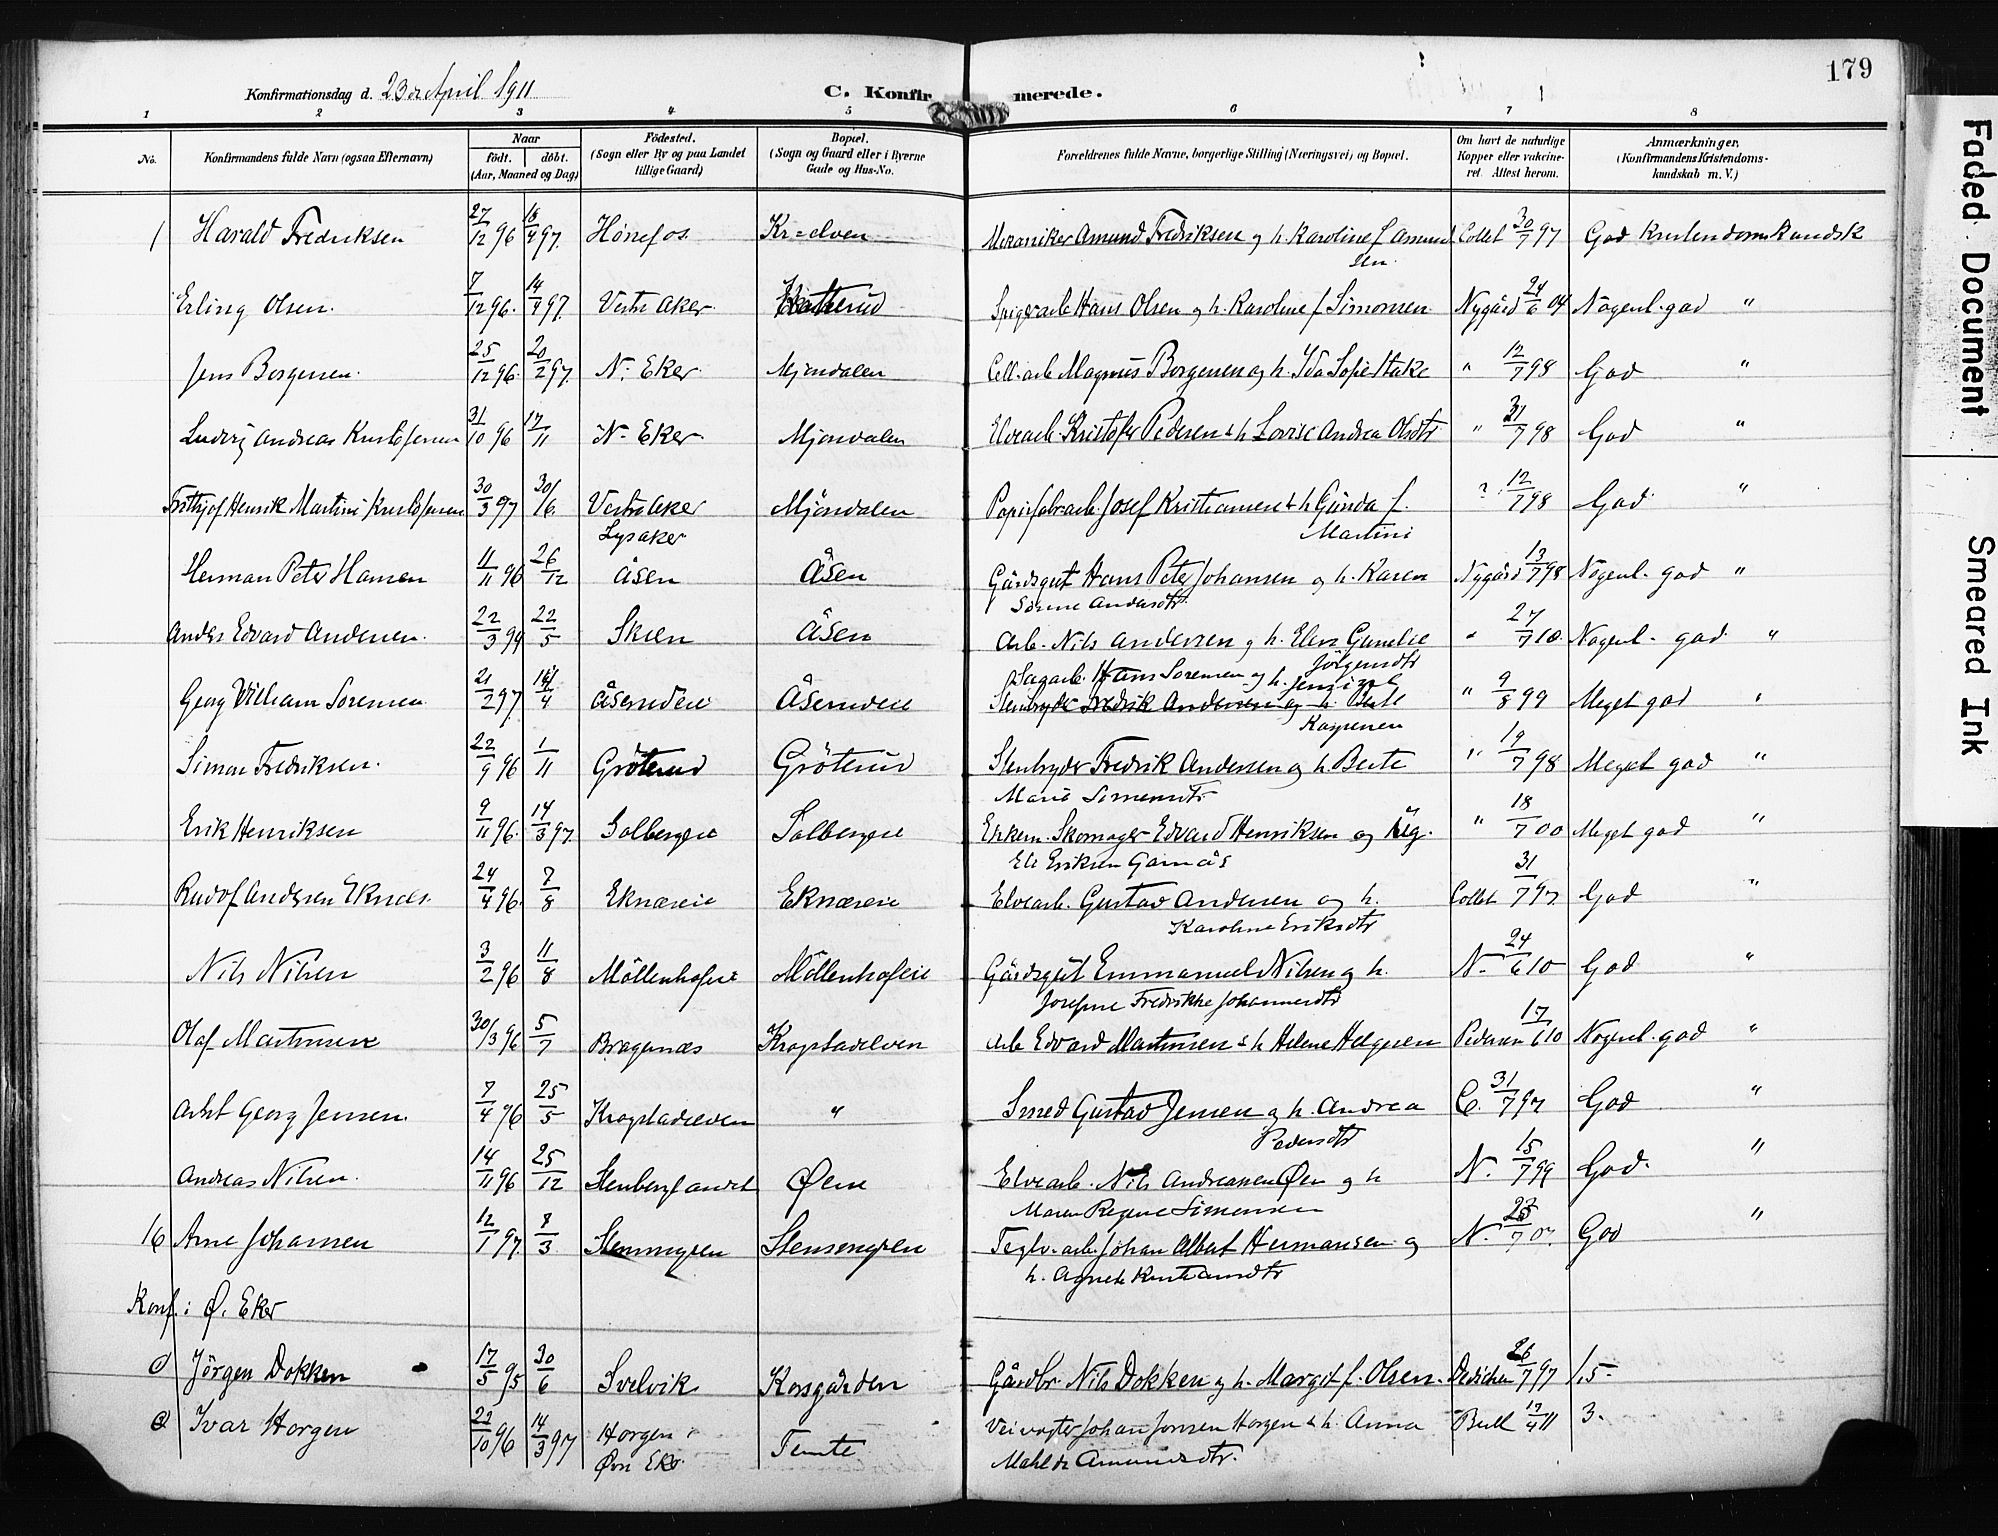 179
Konfirmationsdag d. 23de April 1911
C. Konfirmerede.
1 2 3 4 5 6 7 8
No. Konfirmandens fulde Navn (ogsaa Efternavn) Naar født. døbt. (Aar, Maaned og Dag) Fødested. (Sogn eller By og paa Landet tillige Gaard) Bopæl. (Sogn og Gaard eller i Byerne Gade og Hus-No. Forældrenes fulde Navne, borgerlige Stilling (Næringsvei) og Bopæl. Om havt de naturlige Kopper eller vakcineret. Attest herom. Anmærkninger. (Konfirmandens Kristendomskundskab m. V.)
1 Harald Fredriksen 27/12 96 18/4 97. Hønefos. Kr=elven Mekaniker Amund Fredriksen og h. Karoline f Amundsen Collet 30/7 97 God Kristendomskundsk
Erling Olsen. 7/12 96. 14/4 97. Vestre Aker. Spigerarb Hans Olsen og h. Karoline f Simonsen Nygård 24/6 04 Nogenl. god "
Jens Borgersen. 25/12 96. 20/2 97. N. Eker. Mjøndalen Cell. arb Magnus Borgersen og h. Ida Sofie Stake " 12/7 98 God "
Ludvig Andreas Kristofersen 31/10 96 17/11 N. Eker Mjøndalen Elvearb. Kristofer Pedersen & h Lovise Andrea Olsdtr " 31/7 98 God "
Frithjof Henrik Martini Kristofersen 30/3 97 30/6. Vestre Aker Lysaker Mjøndalen Papirfabr.arb. Josef Kristiansen & h Gunda f. Martini 12/7 98 God "
Herman Peter Hansen 11/11 96 26/12 Åsen Åsen Gårdsgut Hans Peter Johansen og h. Karen Sørine Andersdtr. Nygård 13/7 98 Nogenl. god "
Anders Edvard Andersen. 22/3 94 22/5 Skien Åsen Arb. Nils Andersen og h. Elen Gunelie Jörgensdtr " 27/7 10. Nogenl. god "
Georg Vilhelm Sørensen 21/2 97. 14/4 Åserudeie Åserudeie Sagarb. Hans Sørensen og h. Jensine Kaspersen " 9/8 99 Meget god "
Stenbryder Fredrik Andersen og h. Berte
Simon Fredriksen. 22/9 96 1/11 Grøterud Grøterud Stenbryder Fredrik Andersen og h Berte Marie Simensdtr " 19/7 98 Meget god "
Erik Henriksen 9/11 96. 14/3 97. Solbergeie Solbergeie Enkem. Skomager Edvard Henriksen og Ug. Eli Eriksen Gamås " 18/7 00 Meget god "
Rudof Andersen Eknes. 24/4 96. 7/8 Eknæseie Eknæseie Elvearb. Gustav Andersen og h. Karoline Eriksdtr Collet 31/7 97. God "
Nils Nilsen 3/2 96 11/8 Möllenhofeie Möllenhofeie Gårdsgut Emmanuel Nilsen og h. Josefine Fredrikke Johannesdtr N. 24/6 10 God "
Olaf Martinsen 30/3 96 5/7 Bragernæs Krogstadelven Arb Edvard Martinsen & h Helene Helgesen Pedersen 17/6 10 Nogenl. god "
Georg Jensen. 7/4 96 25/5 Krogstadelven " Smed Gustav Jensen og h. Andrea Pedersdtr C. 31/7 97 God "
Andreas Nilsen. 14/11 96 25/12 Stenberglandet Øen Elvearb. Nils Andreassen Øen og h Maren Regine Simensen N. 15/7 99 God. "
16 Arne Johansen 12/1 97. 7/3 Stensengren Stensengren Teglv. arb. Johan Albert Hermansen og h. Agnete Kristiansdtr N. 23/7 07. God "
Konf. i Ø. Eker
Jörgen Dokken 17/5 95 30/6 Svelvik Korsgården Gårdbr Nils Dokken og h. Margit f. Olsen. Dedichen 26/7 97 1.5
Ivar Horgen 22/10 96 14/3 97 Horgen Øvr Eker Temte Veivogter Johan Jonsen Horgen & h. Anna Mathilde Amundsdtr. Bull 12/4 11 3.
Faded Document
Smeared Ink